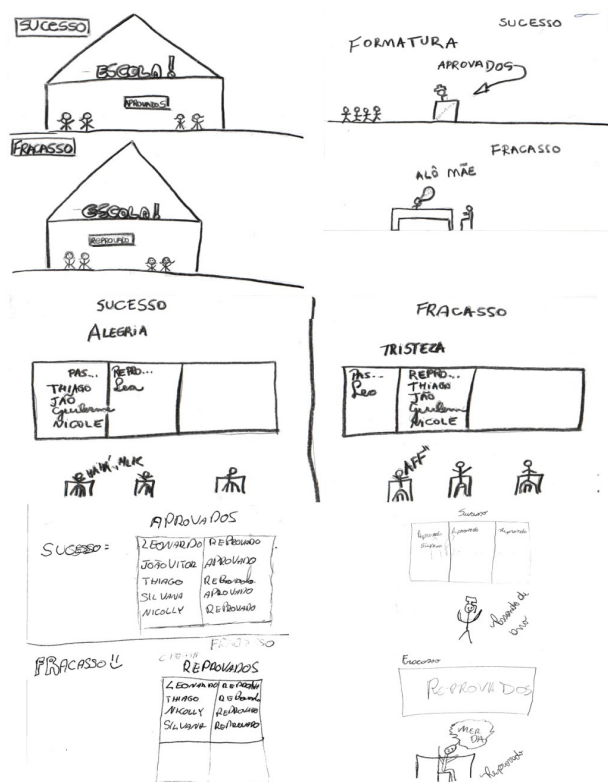 SUCESSO
ESCOLA!
APROVADOS
FRACASSO
ESCOLA!
REPROVADO
SUCESSO
FORMATURA
APROVADOS
FRACASSO
ALÔ MÃE
SUCESSO
ALEGRIA
PAS... REPRO...
THIAGO Leo
JÃO
Guilherme
NICOLE
FRACASSO
TRISTEZA
PAS... REPRO...
Leo THIAGO
JÃO
Guilherme
NICOLE
"AFF"
APROVADOS
SUCESSO =
LEONARDO REPROVADO
JOÃO VITOR APROVADO
THIAGO REPROVADO
SILVANA APROVADO
NICOLLY REPROVADO
FRACASSO!!
REPROVADOS
LEONARDO REPROVA
THIAGO REPROVADO
NICOLLY REPROVADO
SILVANA REPROVADO
Sucesso
Reprovado
Passando de
ano
Fracasso
REPROVADOS
MER
DA
Reprovado